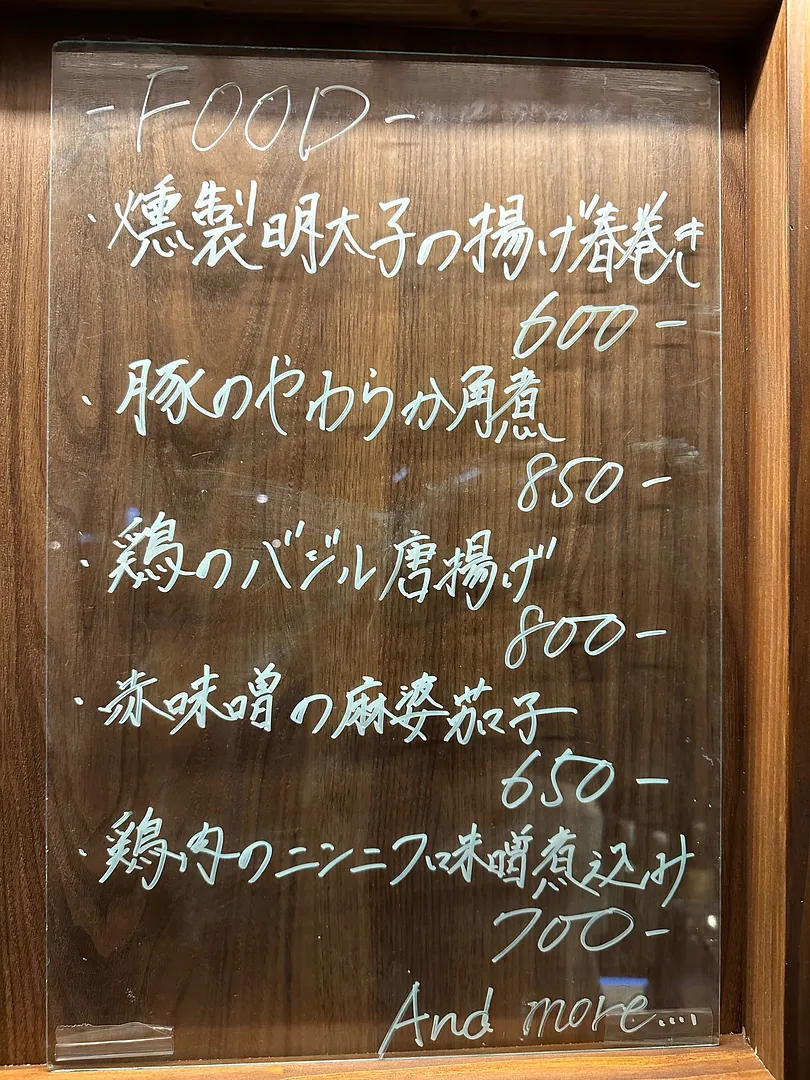 - FOOD -
・燻製明太子の揚げ春巻き
600-
・豚のやわらか角煮
850-
・鶏のバジル唐揚げ
800-
・赤味噌の麻婆茄子
650-
・鶏肉のニンニク味噌煮込み
700-
And more....